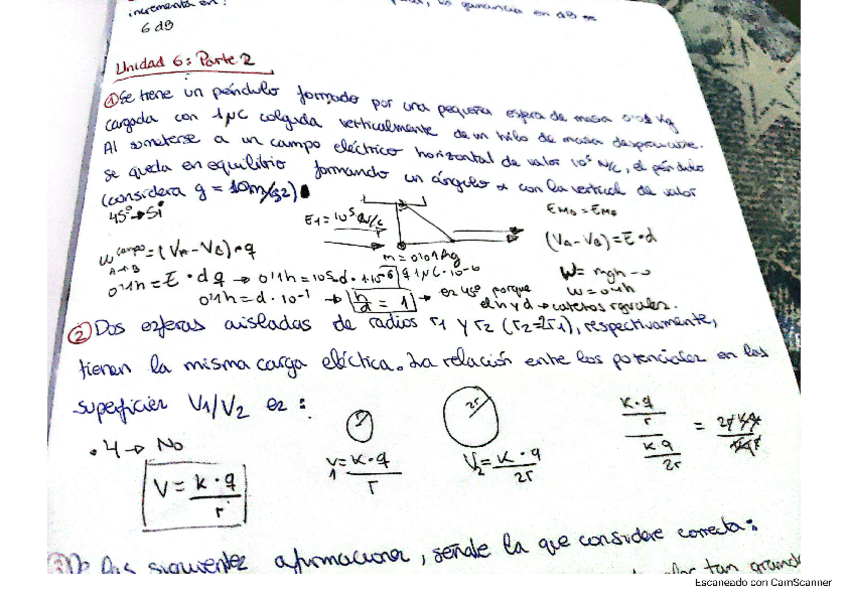 incrementa en:
ganancia en dB
6 dB
Unidad 6: Parte 2
① Se tiene un péndulo formado por una pequeña esfera de masa 0'01 Kg
cargada con 1μC colgada verticalmente de un hilo de masa despreciable.
Al someterse a un campo eléctrico horizontal de valor 10⁵ N/C, el péndulo
se queda en equilibrio formando un ángulo α con la vertical de valor
(considera g = 10m/s2)
45° → Si
E1 = 10⁵ N/C
EMo = EMo
W campo A→B = (VA - VB) · q
(VA - VB) = E · d
m = 0'01 Kg
0'1h = E · d q → 0'1h = 10⁵ · d · 1·10⁻⁶
q 1μC · 10⁻⁶
W = mgh
W = 0'1h
0'1h = d · 10⁻¹ → h/d = 1 → es 45° porque
d h y d → catetos iguales.
② Dos esferas aisladas de radios r1 y r2 (r2=2r1), respectivamente,
tienen la misma carga eléctrica. La relación entre los potenciales en las
superficies V1/V2 es:
· 4 → No
2r
V = k · q / r
V1 = k · q / r
V2 = k · q / 2r
k · q / r / kq / 2r =
③ De las siguientes afirmaciones, señale la que considere correcta:
tan grande
Escaneado con CamScanner